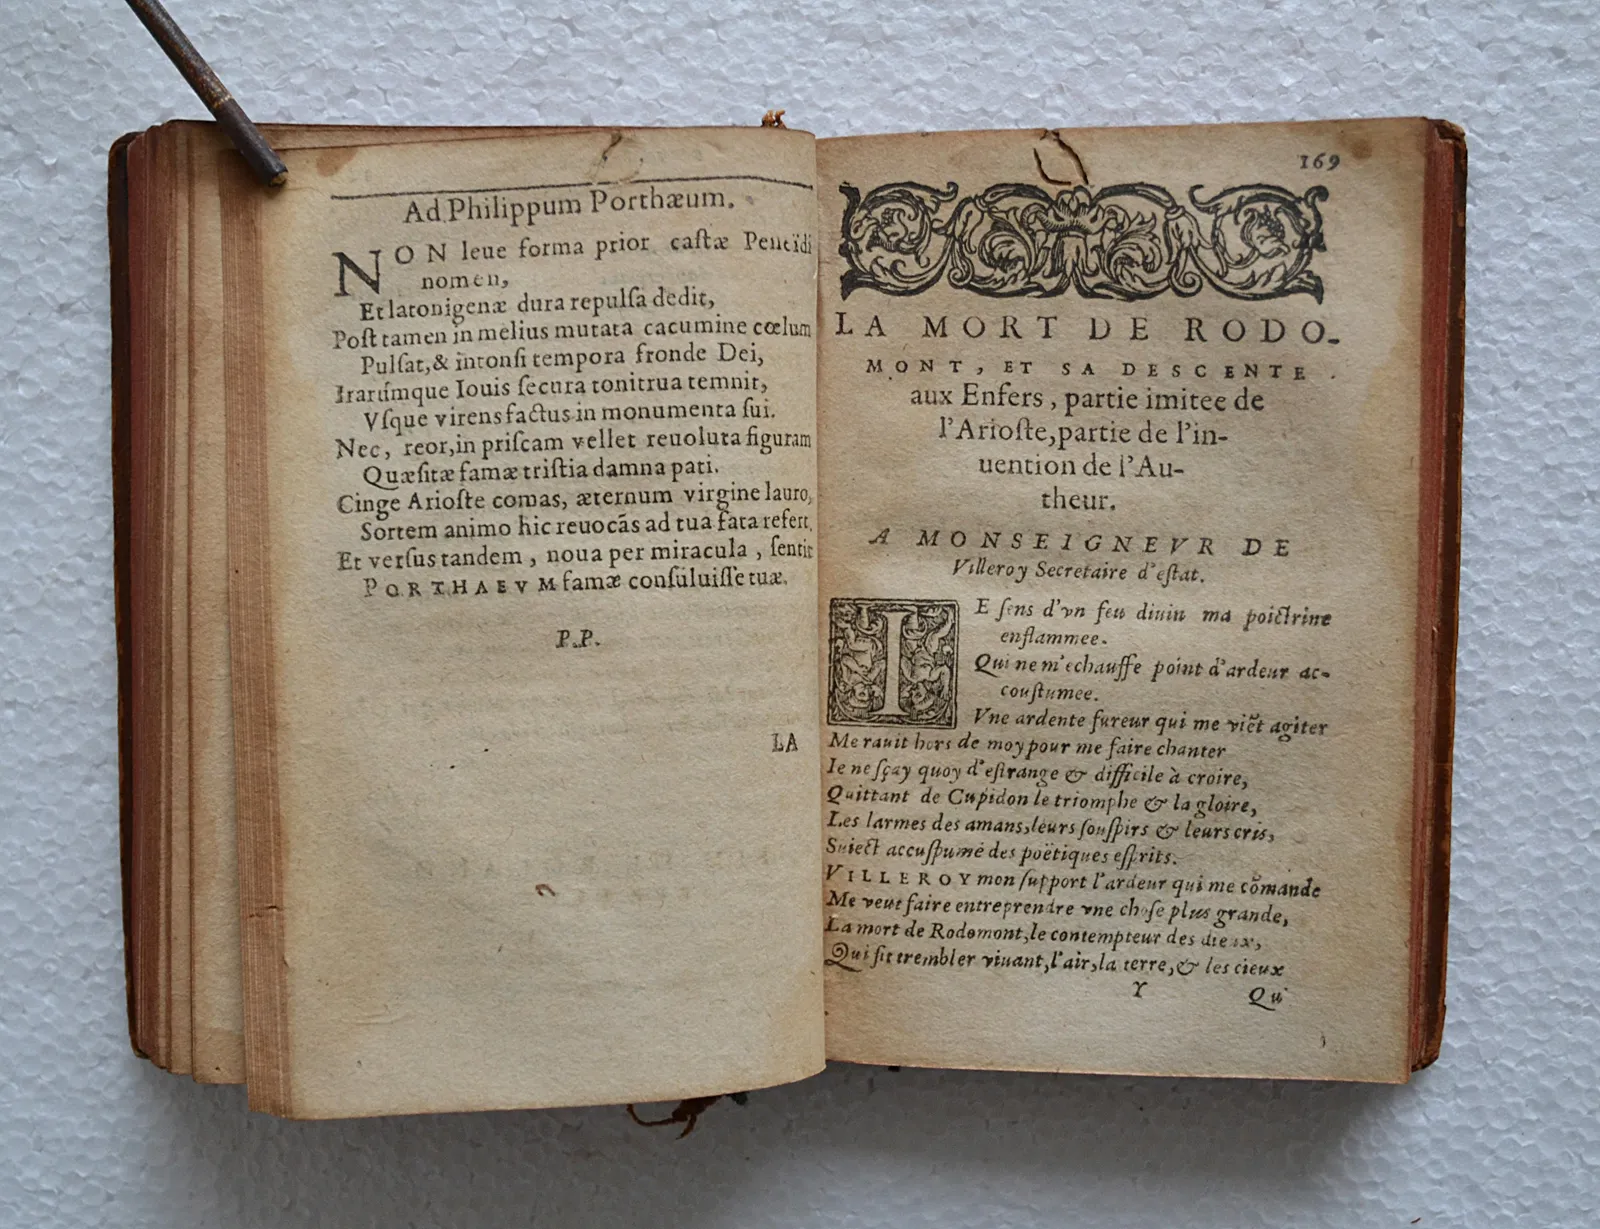 Ad Philippum Porthæum.
NON leue forma prior castæ Peneïdi
nomen,
Et latonigenæ dura repulsa dedit,
Post tamen in melius mutata cacumine cœlum
Pulsat, & intonsi tempora fronde Dei,
Irarúmque Iouis secura tonitrua temnit,
Vsque virens factus in monumenta sui.
Nec, reor, in priscam vellet reuoluta figuram
Quæsitæ famæ tristia damna pati.
Cinge Arioste comas, æternum virgine lauro,
Sortem animo hic reuocãs ad tua fata refert.
Et versus tandem, noua per miracula, sentit
PORTHAEVM famæ consuluisse tuæ.
P.P.
LA
169
LA MORT DE RODO-
MONT, ET SA DESCENTE
aux Enfers, partie imitee de
l'Arioste, partie de l'in-
uention de l'Au-
theur.
A MONSEIGNEVR DE
Villeroy Secretaire d'estat.
IE sens d'vn feu diuin ma poictrine
enflammee.
Qui ne m'echauffe point d'ardeur ac-
coustumee.
Vne ardente fureur qui me viẽt agiter
Me rauit hors de moy pour me faire chanter
Ie ne sçay quoy d'estrange & difficile à croire,
Quittant de Cupidon le triomphe & la gloire,
Les larmes des amans, leurs souspirs & leurs cris,
Suiect accuspumé des poëtiques esprits.
VILLEROY mon support l'ardeur qui me cõmande
Me veut faire entreprendre vne chose plus grande,
La mort de Rodomont, le contempteur des dieux,
Qui fit trembler viuant, l'air, la terre, & les cieux
Y
Qui